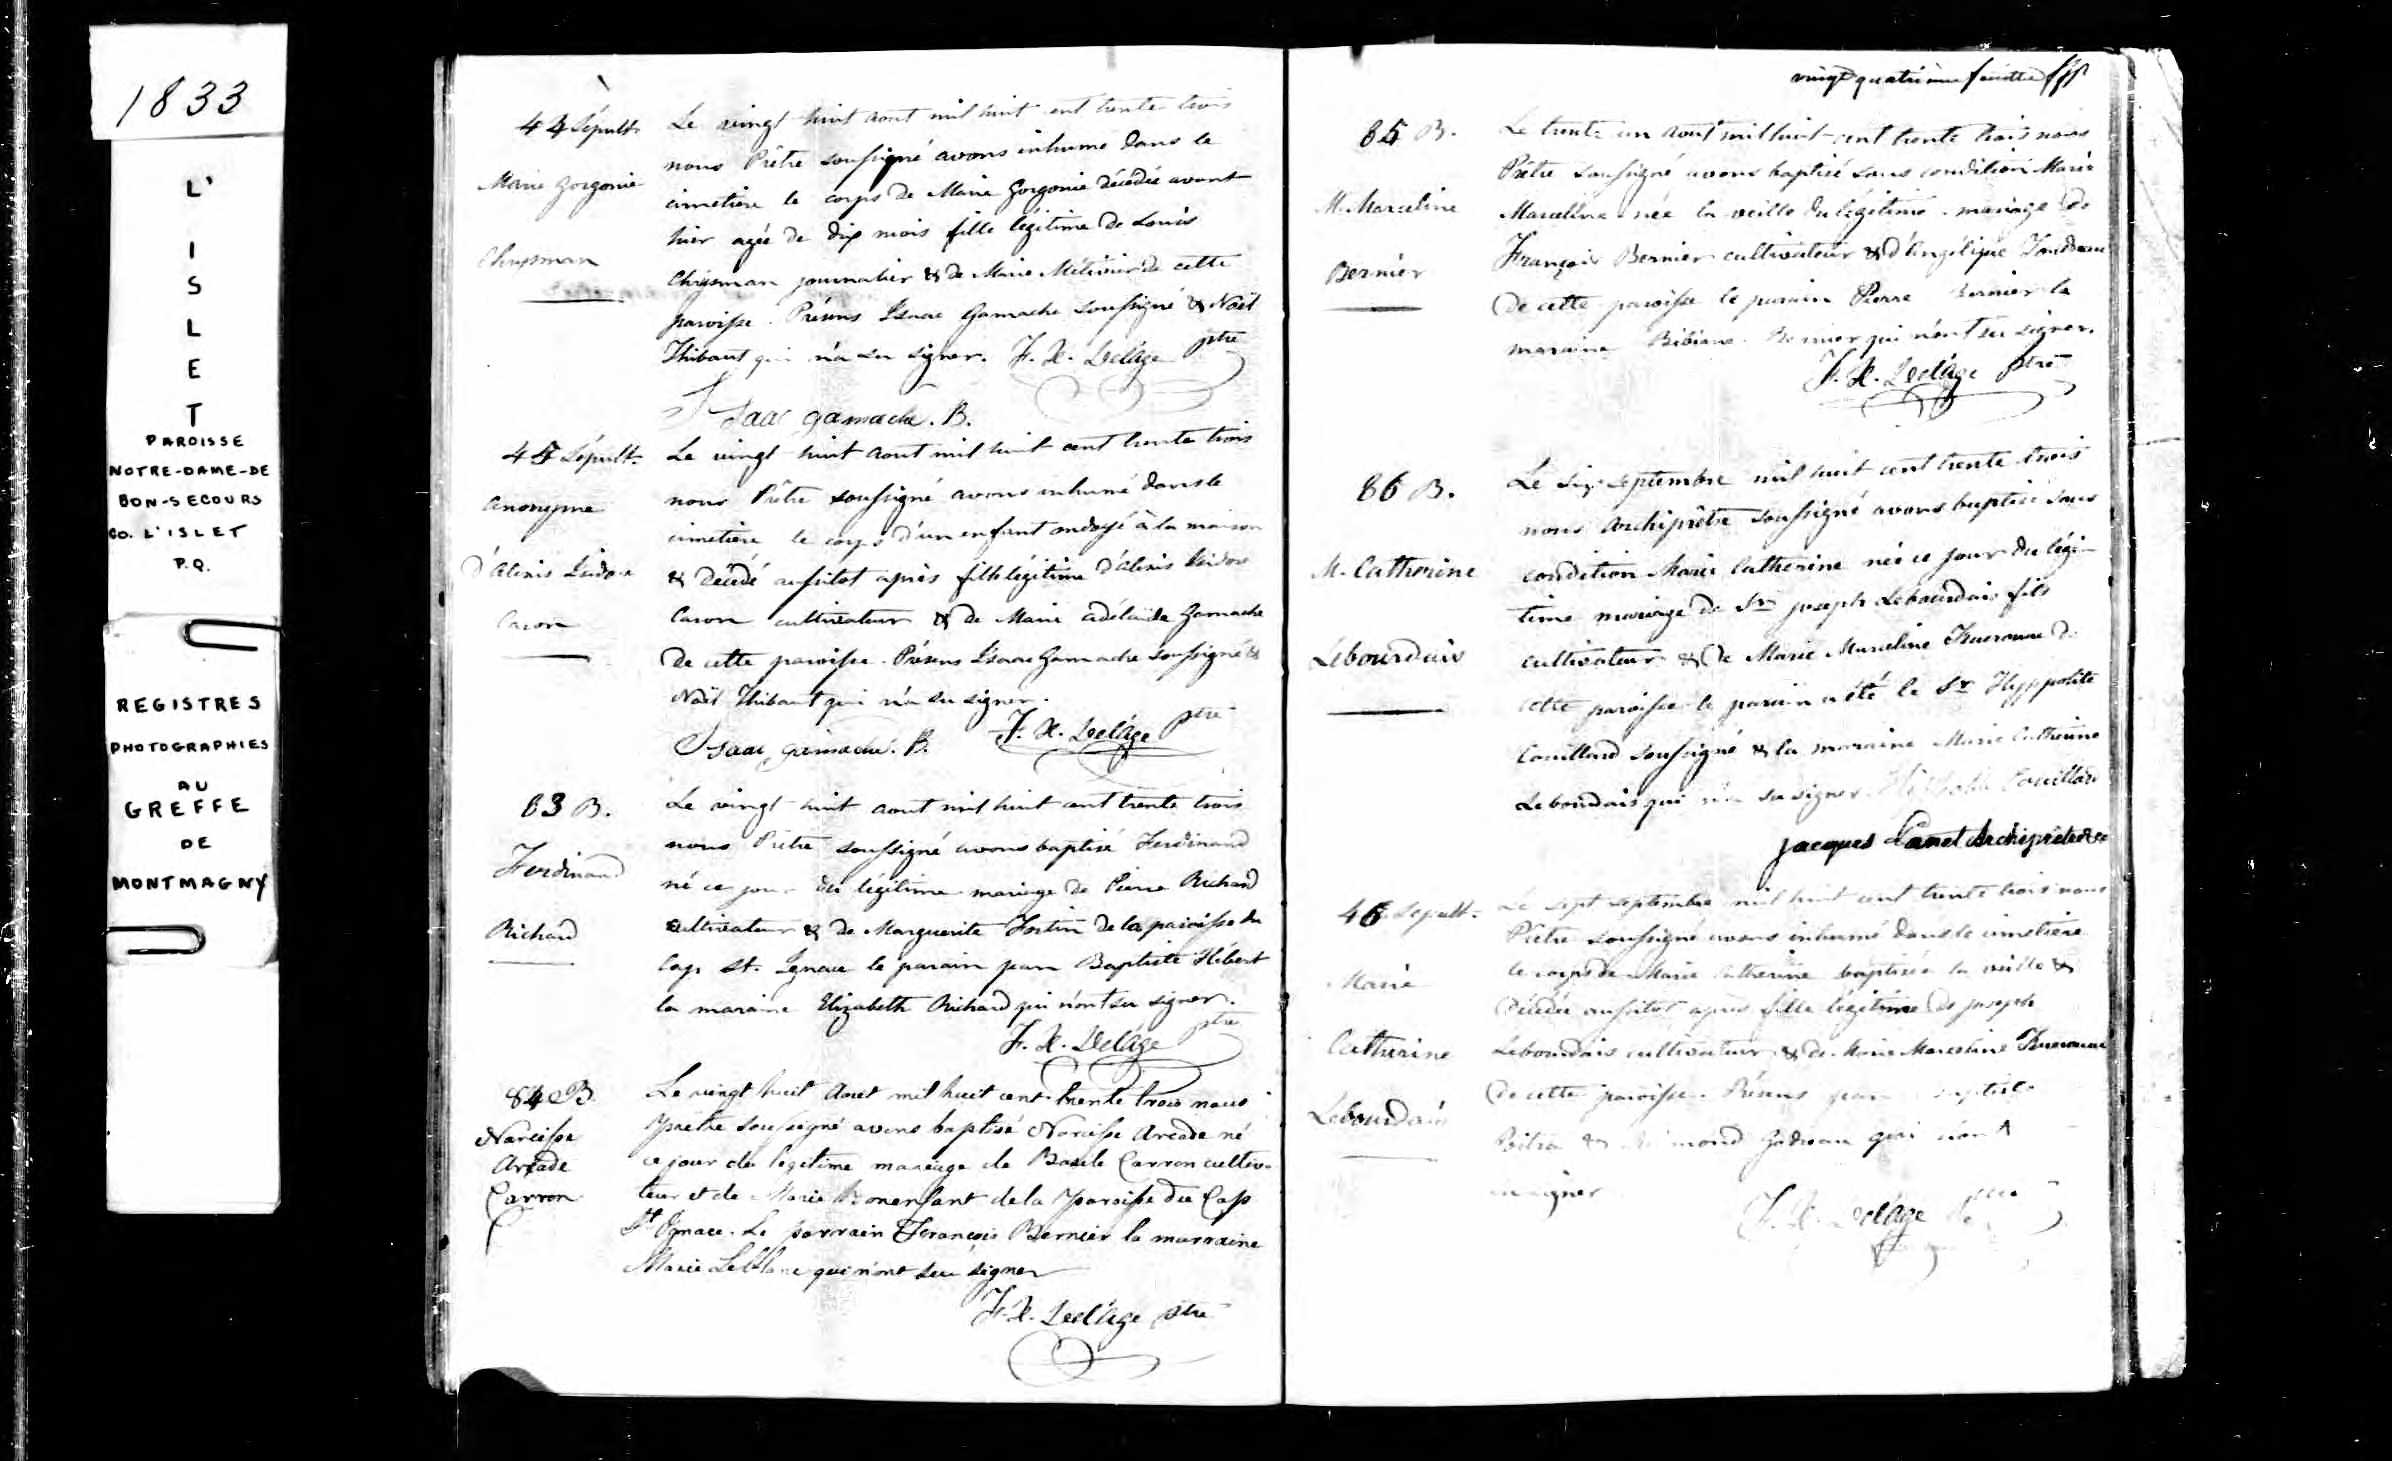 1833
L'
I
S
L
E
T
PAROISSE
NOTRE-DAME-DE
BON-SECOURS
CO. L'ISLET
P.Q.
REGISTRES
PHOTOGRAPHIES
AU
GREFFE
DE
MONTMAGNY
44 Sépult.
Marie Gorgonie
Chrysman
Le vingt huit aout mil huit cent trente trois
nous Prêtre soussigné avons inhumé dans le
cimetiere le corps de Marie Gorgonie décédée avant
hier agée de dix mois fille légitime de Louis
Chrysman journalier & de Marie Métivier de cette
paroisse. Présens Isaac Gamache soussigné & Noël
Thibaut qui n'a su signer. F. X. Delâge ptre
Isaac gamache. B.
45 Sépult.
Anonyme
d'Alexis Isidore
Caron
Le vingt huit aout mil huit cent trente trois
nous Prêtre soussigné avons inhumé dans le
cimetiere le corps d'un enfant ondoyé à la maison
& décédé aussitot après fille légitime d'Alexis Isidore
Caron cultivateur & de Marie Adélaïde Gamache
de cette paroisse. Présens Isaac Gamache soussigné &
Noël Thibaut qui n'a su signer.
Isaac gamache. B. F. X. Delâge ptre
83 B.
Ferdinand
Richard
Le vingt huit aout mil huit cent trente trois
nous Prêtre soussigné avons baptisé Ferdinand
né ce jour du légitime mariage de Pierre Richard
cultivateur & de Marguerite Fortin de la paroisse du
Cap St. Ignace le parain jean Baptiste Hébert
la maraine Elizabeth Richard qui n'ont su signer.
F. X. Delâge ptre
84 B.
Narcisse
Arcade
Carron
Le vingt huit Aout mil huit cent trente trois nous
Prêtre soussigné avons baptisé Narcisse Arcade né
ce jour du légitime mariage de Basile Carron cultiva-
teur et de Marie Bonenfant de la Paroisse du Cap
St Ignace. Le parrain François Bernier la marraine
Marie LeBlanc qui n'ont seu signer
F. X. Delâge ptre
vingt quatrieme feuillet
85 B.
M. Marceline
Bernier
Le trente un aout mil huit-cent trente trois nous
Prêtre soussigné avons baptisé sous condition Marie
Marceline née la veille du légitime mariage de
François Bernier cultivateur & d'Angélique
de cette paroisse le parain Pierre Bernier la
maraine Bibiane Bernier qui n'ont su signer.
F. X. Delâge ptre
86 B.
M. Catherine
Lebourdais
Le six septembre mil huit cent trente trois
nous Archiprêtre soussigné avons baptisé sous
condition Marie Catherine née ce jour du légi-
time mariage de Sr. joseph Lebourdais fils
cultivateur & de Marie Marceline
cette paroisse le parain a été le Sr. Hyppolite
Couillard soussigné & la maraine Marie Catherine
Lebourdais qui n'a su signer Couillard
jacques Panet Archiprêtre
46 Sépult.
Marie
Catherine
Lebourdais
Le sept septembre mil huit cent trente trois nous
Prêtre soussigné avons inhumé dans le cimetiere
le corps de Marie Catherine baptisée la veille &
décédée aussitot après fille légitime de joseph
Lebourdais cultivateur & de Marie Marceline
de cette paroisse. Présens
& qui n'ont
su signer
F. X. Delâge ptre